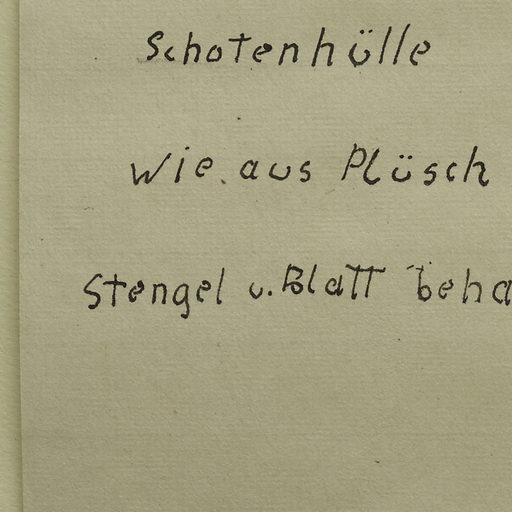 Schotenhülle
wie aus Plüsch
Stengel u. Blatt beha